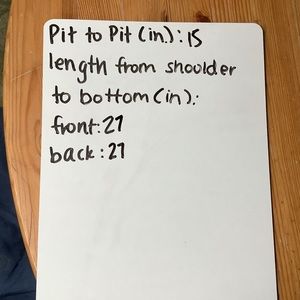 Pit to Pit (in.): 15
length from shoolder
to bottom (in).:
front: 27
back: 27